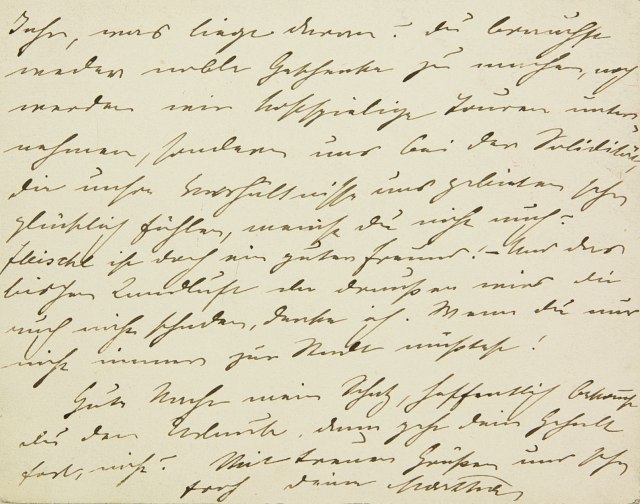 Jahr, was liegt daran? du brauchst
weder noble Geschenke zu machen, noch
werden wir kostspielige Touren unter-
nehmen, sondern uns bei der Solidität,
die unsre Verhältnisse uns gebieten sehr
glücklich fühlen, meinst du nicht auch?
Fleischl ist doch ein guter Freund! – Und das
bischen Landluft da draussen wird dir
auch nicht schaden, denke ich. Wenn du nur
nicht immer zur Stadt müsstest!
Gute Nacht mein Schatz, hoffentlich bekommst
du den Urlaub, dann geht dein Gehalt
fort, nicht? Mit treuen Grüßen und
deine Martha